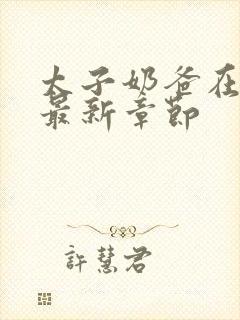 太子奶爸在
最新章節
許慧君